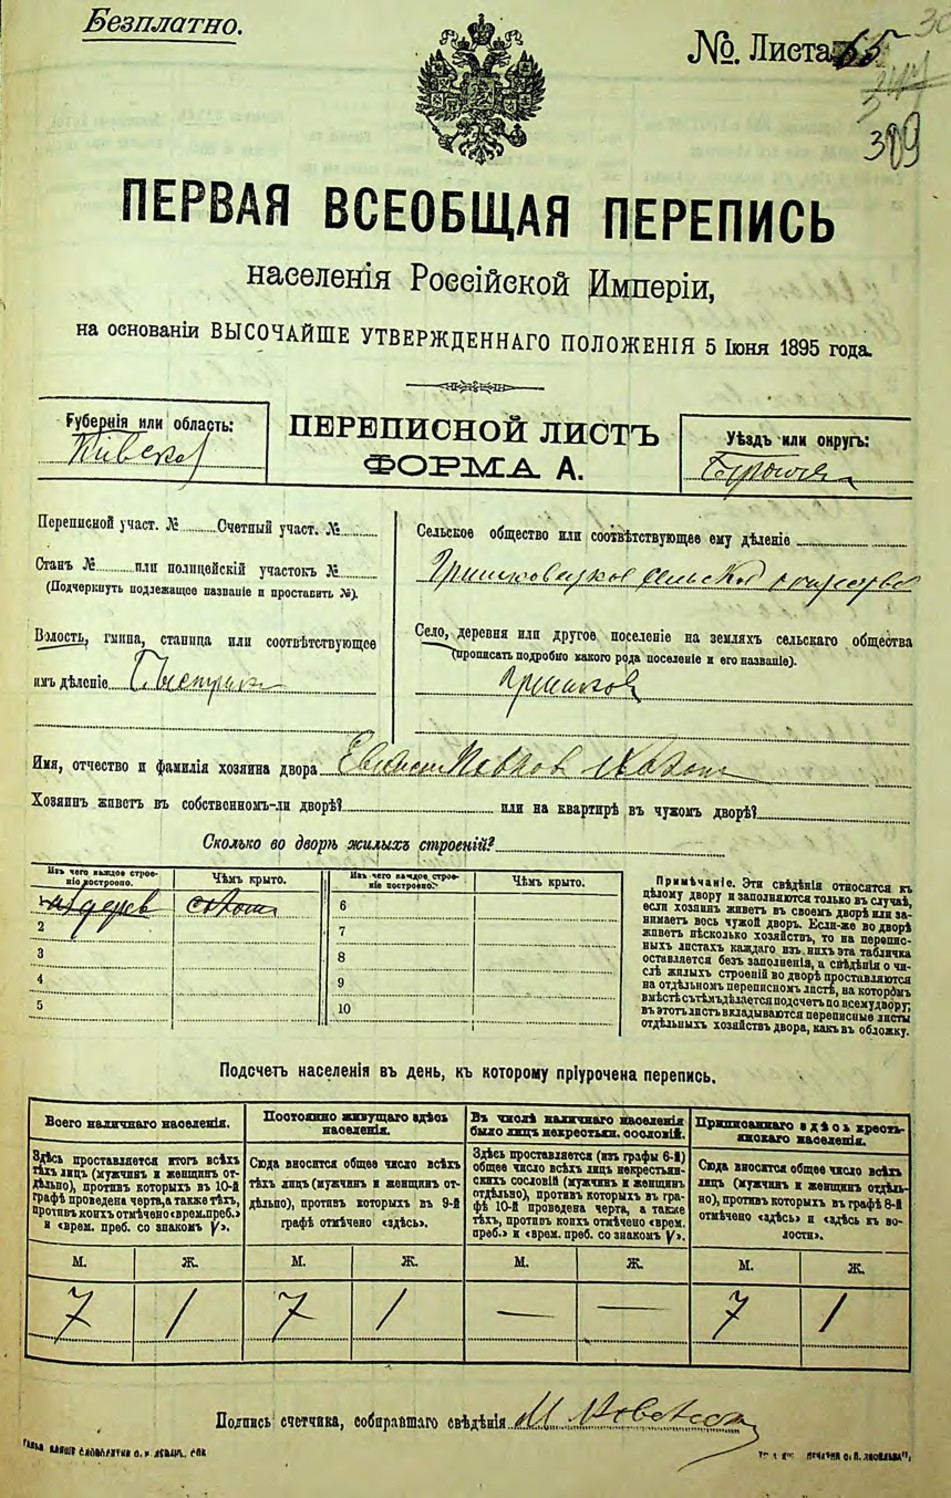 Безплатно.
№. Листа 65
389
ПЕРВАЯ ВСЕОБЩАЯ ПЕРЕПИСЬ
населенія Россійской Имперіи,
на основаніи ВЫСОЧАЙШЕ УТВЕРЖДЕННАГО ПОЛОЖЕНІЯ 5 Іюня 1895 года.
Губернія или область:
Кіевская
ПЕРЕПИСНОЙ ЛИСТЪ
ФОРМА А.
Уѣздъ или округъ:
Переписной участ. № Счетный участ. №
Станъ № или полицейскій участокъ №
(Подчеркнуть подлежащее названіе и проставить №).
Волость, гмина, станица или соотвѣтствующее
имъ дѣленіе
Сельское общество или соотвѣтствующее ему дѣленіе
сельское общество
Село, деревня или другое поселеніе на земляхъ сельскаго общества
(прописать подробно какого рода поселеніе и его названіе).
Имя, отчество и фамилія хозяина двора
Хозяинъ живетъ въ собственномъ-ли дворѣ? или на квартирѣ въ чужомъ дворѣ?
Сколько во дворѣ жилыхъ строеній?
Изъ чего каждое строеніе построено.
Чѣмъ крыто.
Изъ чего каждое строеніе построено.
Чѣмъ крыто.
1 изъ дерев солом
6
2
7
3
8
4
9
5
10
Примѣчаніе. Эти свѣдѣнія относятся къ
цѣлому двору и заполняются только въ случаѣ,
если хозяинъ живетъ въ своемъ дворѣ или за-
нимаетъ весь чужой дворъ. Если-же во дворѣ
живетъ нѣсколько хозяйствъ, то на перепис-
ныхъ листахъ каждаго изъ нихъ эта табличка
оставляется безъ заполненія, а свѣдѣнія о чи-
слѣ жилыхъ строеній во дворѣ проставляются
на отдѣльномъ переписномъ листѣ, на которомъ
вмѣстѣ съ тѣмъ дѣлается подсчетъ по всему двору;
въ этотъ листъ вкладываются переписные листы
отдѣльныхъ хозяйствъ двора, какъ въ обложку.
Подсчетъ населенія въ день, къ которому пріурочена перепись.
Всего наличнаго населенія.
Здѣсь проставляется итогъ всѣхъ
тѣхъ лицъ (мужчинъ и женщинъ от-
дѣльно), противъ которыхъ въ 10-й
графѣ проведена черта, а также тѣхъ,
противъ коихъ отмѣчено «врем. преб.»
и «врем. преб. со знакомъ V».
Постоянно живущаго здѣсь
населенія.
Сюда вносится общее число всѣхъ
тѣхъ лицъ (мужчинъ и женщинъ от-
дѣльно), противъ которыхъ въ 9-й
графѣ отмѣчено «здѣсь».
Въ числѣ наличнаго населенія
было лицъ некрестьян. сословій.
Здѣсь проставляется (изъ графы 6-й)
общее число всѣхъ лицъ некрестьян-
скихъ сословій (мужчинъ и женщинъ
отдѣльно), противъ которыхъ въ гра-
фѣ 10-й проведена черта, а также
тѣхъ, противъ коихъ отмѣчено «врем.
преб.» и «врем. преб. со знакомъ V».
Приписаннаго здѣсь кресть-
янскаго населенія.
Сюда вносится общее число всѣхъ
лицъ (мужчинъ и женщинъ отдѣль-
но), противъ которыхъ въ графѣ 8-й
отмѣчено «здѣсь» и «здѣсь къ во-
лости».
М. Ж. М. Ж. М. Ж. М. Ж.
7 1 7 1 — — 7 1
Подпись счетчика, собиравшаго свѣдѣнія